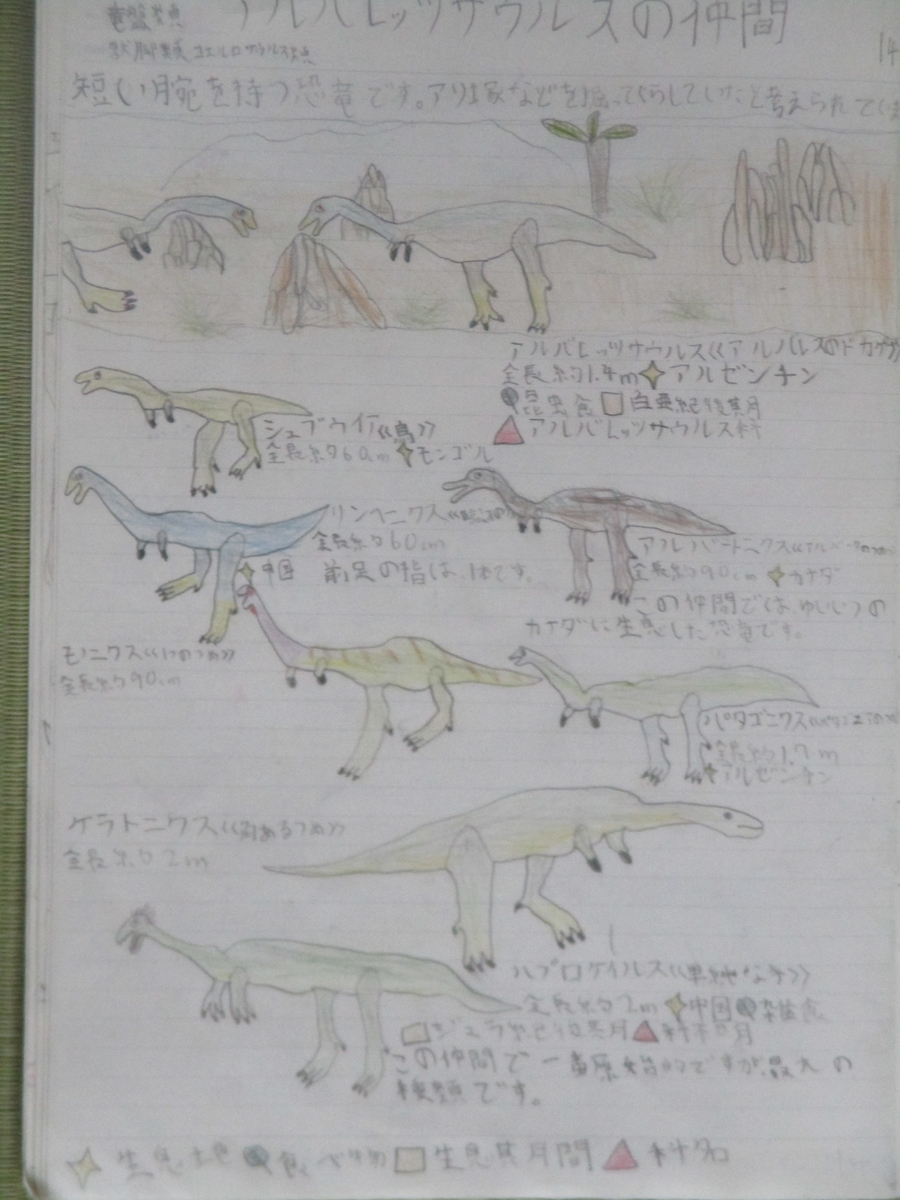 アルバレッツサウルスの仲間
竜盤類
獣脚類 コエルロサウルス類
14
短い腕を持つ恐竜です。アリ塚などを掘ってくらしていたと考えられてい
アルバレッツサウルス《アルバレスのトカゲ》
全長約1.4m アルゼンチン
昆虫食 白亜紀後期
アルバレッツサウルス科
シュブウイア《鳥》
全長約60cm モンゴル
リンヘニクス
全長約60cm
中国 前足の指は1本です。
アルバートニクス
全長約90cm カナダ
この仲間では、ゆいいつの
カナダに生息した恐竜です。
モノニクス《1つのつめ》
全長約90cm
パタゴニクス
全長約1.7m
アルゼンチン
ケラトニクス《角あるつめ》
全長約2m
ハプロケイルス《単純な手》
全長約2m 中国 雑食
ジュラ紀後期 科不明
この仲間で一番原始的ですが、最大の
種類です。
生息地 食べ物 生息期間 科名